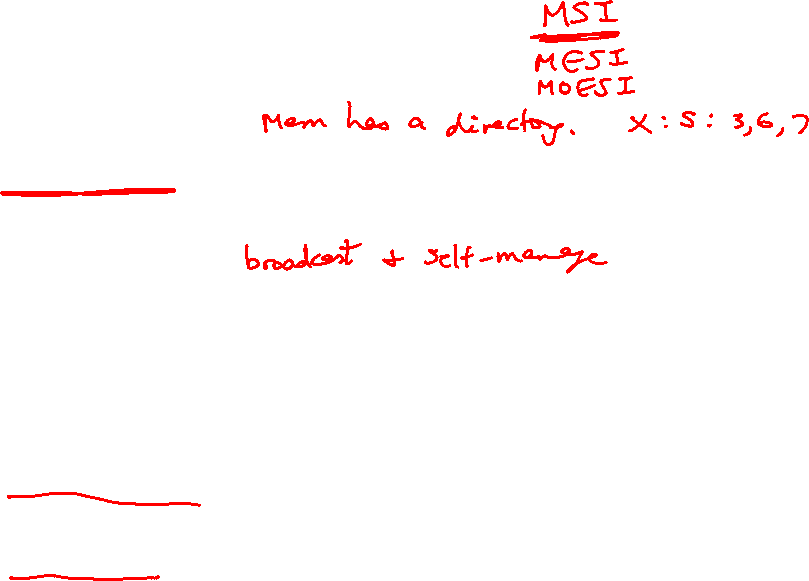 MSI
MESI
MOESI
Mem has a directory. X : S : 3, 6, 7
broadcast + self-manage